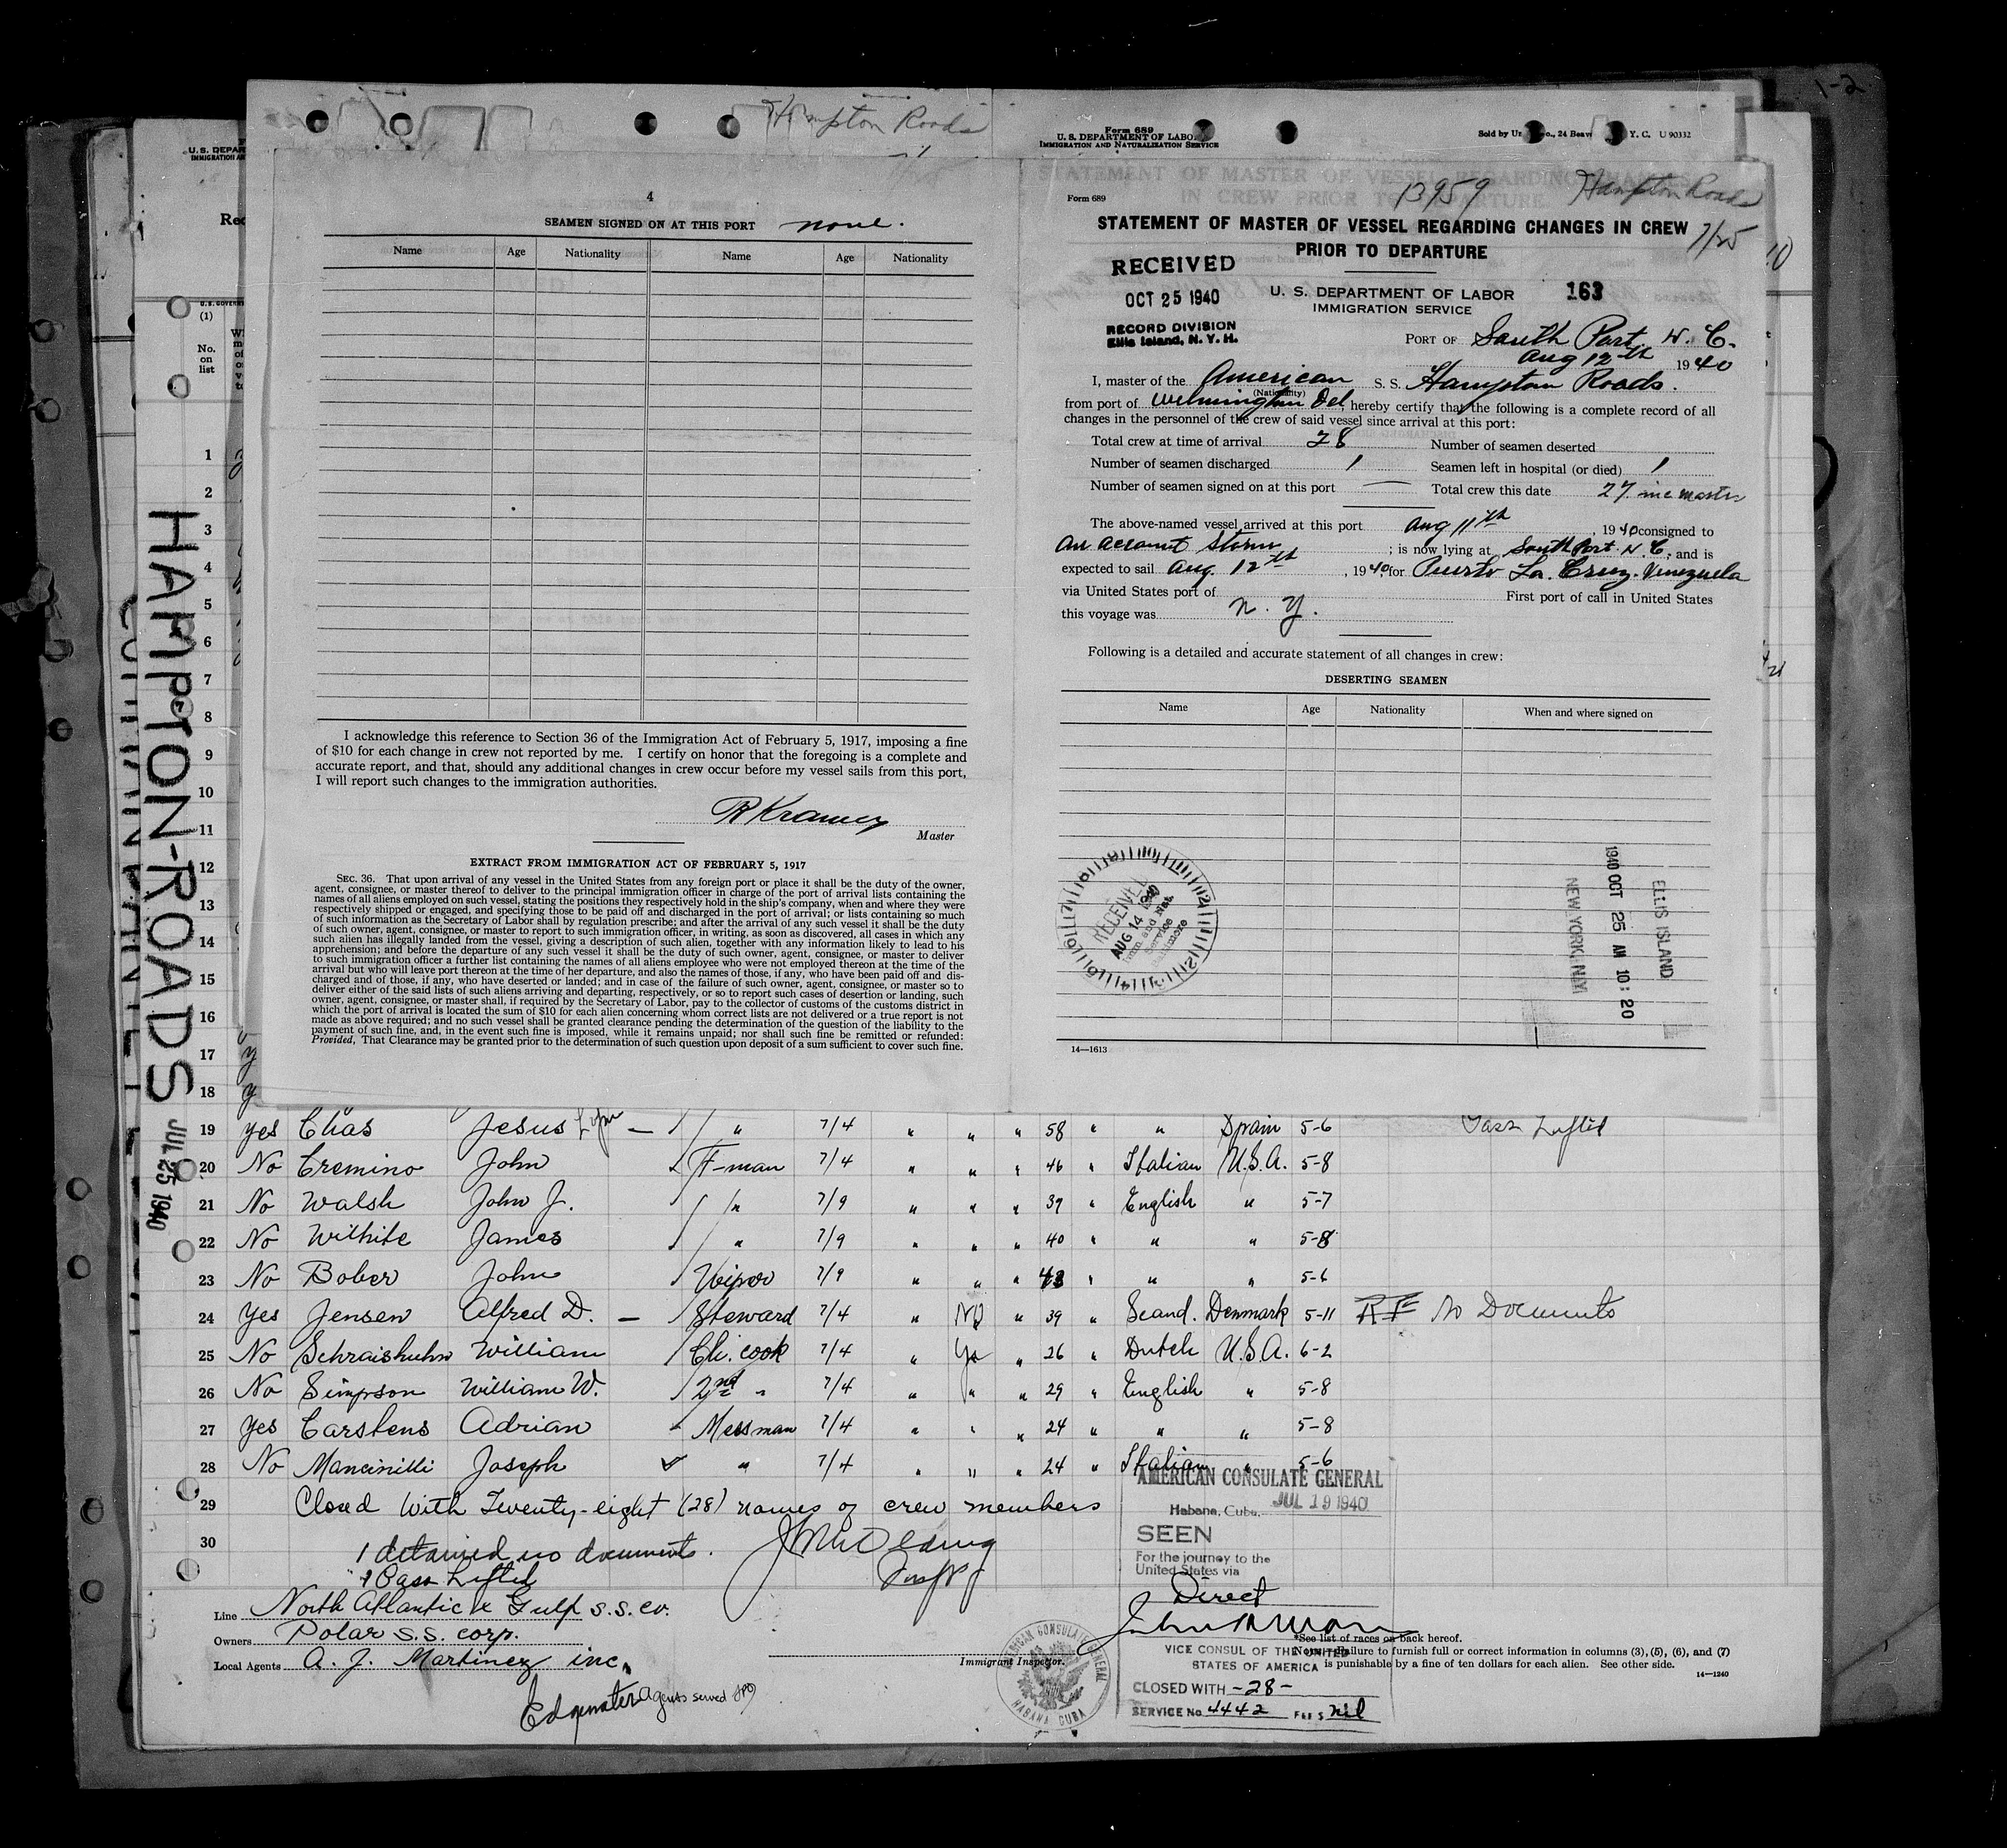 1-2
Hampton Roads
Form 689
U. S. DEPARTMENT OF LABO
IMMIGRATION AND NATURALIZATION SERVICE
Sold by Un o., 24 Beav Y. C. U 90332
U. S. DEPAR
IMMIGRATION AN
Rec
U.S. GOVERN
(1)
No.
on
list
4
SEAMEN SIGNED ON AT THIS PORT none.
Name Age Nationality Name Age Nationality
I acknowledge this reference to Section 36 of the Immigration Act of February 5, 1917, imposing a fine
of $10 for each change in crew not reported by me. I certify on honor that the foregoing is a complete and
accurate report, and that, should any additional changes in crew occur before my vessel sails from this port,
I will report such changes to the immigration authorities.
Master
EXTRACT FROM IMMIGRATION ACT OF FEBRUARY 5, 1917
SEC. 36. That upon arrival of any vessel in the United States from any foreign port or place it shall be the duty of the owner,
agent, consignee, or master thereof to deliver to the principal immigration officer in charge of the port of arrival lists containing the
names of all aliens employed on such vessel, stating the positions they respectively hold in the ship's company, when and where they were
respectively shipped or engaged, and specifying those to be paid off and discharged in the port of arrival; or lists containing so much
of such information as the Secretary of Labor shall by regulation prescribe; and after the arrival of any such vessel it shall be the duty
of such owner, agent, consignee, or master to report to such immigration officer, in writing, as soon as discovered, all cases in which any
such alien has illegally landed from the vessel, giving a description of such alien, together with any information likely to lead to his
apprehension; and before the departure of any such vessel it shall be the duty of such owner, agent, consignee, or master to deliver
to such immigration officer a further list containing the names of all aliens employee who were not employed thereon at the time of the
arrival but who will leave port thereon at the time of her departure, and also the names of those, if any, who have been paid off and dis-
charged and of those, if any, who have deserted or landed; and in case of the failure of such owner, agent, consignee, or master so to
deliver either of the said lists of such aliens arriving and departing, respectively, or so to report such cases of desertion or landing, such
owner, agent, consignee, or master shall, if required by the Secretary of Labor, pay to the collector of customs of the customs district in
which the port of arrival is located the sum of $10 for each alien concerning whom correct lists are not delivered or a true report is not
made as above required; and no such vessel shall be granted clearance pending the determination of the question of the liability to the
payment of such fine, and, in the event such fine is imposed, while it remains unpaid; nor shall such fine be remitted or refunded:
Provided, That Clearance may be granted prior to the determination of such question upon deposit of a sum sufficient to cover such fine.
Form 689
13959 Hampton Roads
7/25
STATEMENT OF MASTER OF VESSEL REGARDING CHANGES IN CREW
PRIOR TO DEPARTURE
RECEIVED
OCT 25 1940
RECORD DIVISION
Ellis Island, N. Y. H.
U. S. DEPARTMENT OF LABOR 163
IMMIGRATION SERVICE
PORT OF South Port N. C.
Aug 12th 1940
I, master of the American S. S. Hampton Roads.
(Nationality)
from port of Wilmington Del, hereby certify that the following is a complete record of all
changes in the personnel of the crew of said vessel since arrival at this port:
Total crew at time of arrival 28 Number of seamen deserted
Number of seamen discharged 1 Seamen left in hospital (or died) 1
Number of seamen signed on at this port — Total crew this date 27 inc master
The above-named vessel arrived at this port Aug 11th, 1940 consigned to
on account storm; is now lying at South Port N. C., and is
expected to sail Aug. 12th, 1940, for Puerto La Cruz. Venezuela
via United States port of First port of call in United States
this voyage was N. Y.
Following is a detailed and accurate statement of all changes in crew:
DESERTING SEAMEN
Name Age Nationality When and where signed on
RECEIVED
AUG 14 1940
Imm. and Nat.
Service
Baltimore
ELLIS ISLAND
1940 OCT 25 AM 10:20
NEW YORK
14—1613
HAMPTON-ROADS
JUL 25 1940
1
2
3
4
5
6
7
8
9
10
11
12
13
14
15
16
17 y
18 y
19 yes Chas Jesus — / " 7/4 " " " 58 " " Spain 5-6 Pass Lifted
20 No Cremino John F-man 7/4 " " " 46 " Italian U.S.A. 5-8
21 No Walsh John J. / " 7/9 " " " 39 " English " 5-7
22 No Wilhite James / " 7/9 " " " 40 " " " 5-8
23 No Bober John / Wiper 7/9 " " " 43 " " " 5-6
24 Yes Jensen Alfred D. — / Steward 7/4 " No " 39 " Scand. Denmark 5-11 No Documents
25 No Schraishuhn William / Ch. cook 7/4 " Yes " 26 " Dutch U.S.A. 6-2
26 No Simpson William W. / 2nd " 7/4 " " " 29 " English " 5-8
27 Yes Carstens Adrian Messman 7/4 " " " 24 " " " 5-8
28 No Mancinilli Joseph " 7/4 " " " 24 " Italian " 5-6
29 Closed With Twenty-eight (28) names of crew members
30
1 detained no documents.
1 Pass Lifted
Line North Atlantic & Gulf S.S. Co.
Owners Polar S.S. Corp.
Local Agents A. J. Martinez inc.
Edgewater Agents served
Immigrant Inspector.
AMERICAN CONSULATE GENERAL
HABANA CUBA
AMERICAN CONSULATE GENERAL
Habana, Cuba. JUL 19 1940
SEEN
For the journey to the
United States via
Direct
VICE CONSUL OF THE UNITED
STATES OF AMERICA
CLOSED WITH -28-
SERVICE No. 4442 FEES nil
*See list of races on back hereof.
Failure to furnish full or correct information in columns (3), (5), (6), and (7)
is punishable by a fine of ten dollars for each alien. See other side.
14—1240